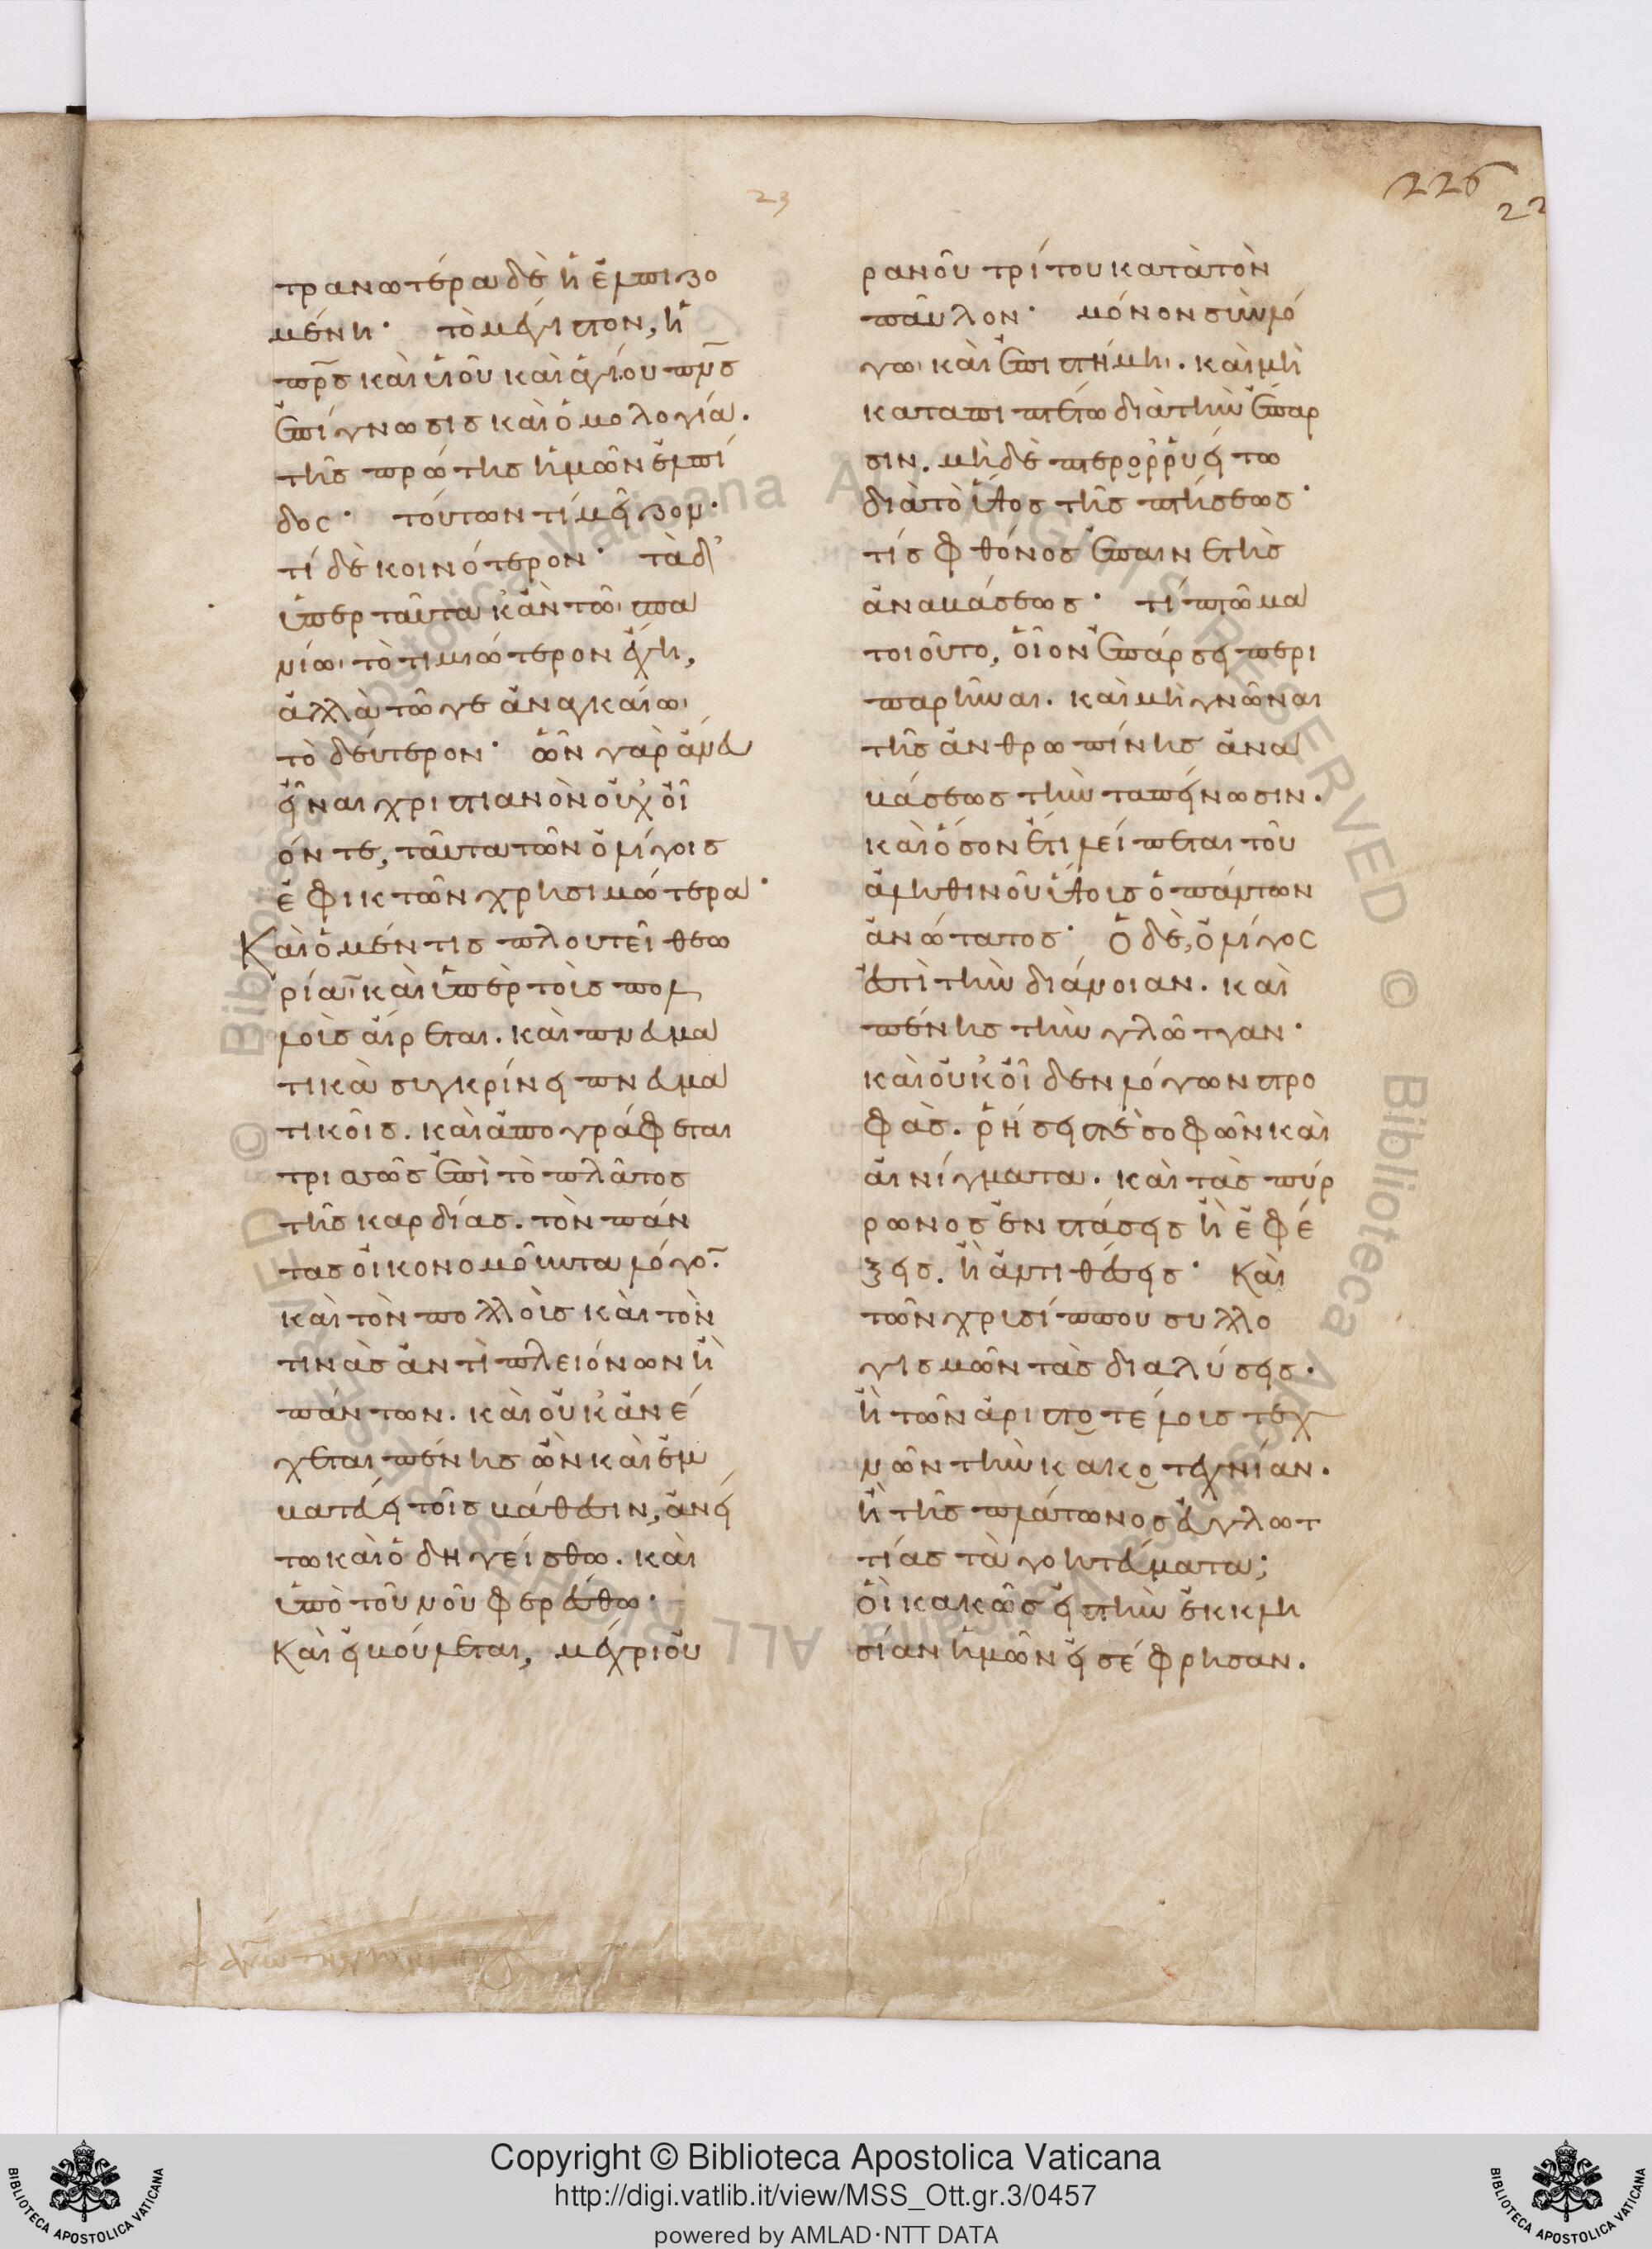 23
226
22
τρανωτέρα δὲ ἡ ἐλπιζο
μένη· τὸ μέγιστον, ἡ
πρς καὶ υἱοῦ καὶ ἁγίου πνς
ἐπίγνωσις καὶ ὁμολογία.
τῆς πρώτης ἡμῶν ἐλπί
δος· τούτων τί μεῖζον·
τί δὲ κοινότερον· τὰ δ'
ὑπερ ταῦτα κἂν τῶ σπα
νίω τὸ τιμιώτερον ἔχη,
ἀλλὰ τῶ γε ἀναγκαίω
τὸ δεύτερον· ὧν γὰρ ἄνευ
εἶναι χριστιανὸν οὐχ οἷ
όν τε, ταῦτα τῶν ὀλίγοις
ἐφικτῶν χρησιμώτερα·
Καὶ ὁ μέν τις πλουτεῖ θεω
ρίαν καὶ ὑπὲρ τοὺς πολ
λοὺς αἴρεται. καὶ πνευμα
τικὰ συγκρίνει πνευμα
τικοῖς. καὶ ἀπογράφεται
τρισσῶς ἐπὶ τὸ πλάτος
τῆς καρδίας. τὸν πάν
τας οἰκονομοῦντα λόγον.
καὶ τὸν πολλοὺς καὶ τὸν
τινὰς ἀντὶ πλειόνων ἢ
πάντων. καὶ οὐκ ἀνέ
χεται πένης ὢν καὶ ἐμ
βατεύει τοῖς βάθεσιν, ἀνεί
τω καὶ ὁδηγείσθω. καὶ
ὑπὸ τοῦ νοῦ φερέσθω·
Καὶ εἰ βούλεται, μέχρι οὐ
ρανοῦ τρίτου κατὰ τὸν
παῦλον· μόνον σὺν λό
γω καὶ ἐπιστήμη. καὶ μὴ
καταπιπτέτω διὰ τὴν ἔπαρ
σιν. μὴ δὲ πτερορρυείτω
διὰ τὸ ὕψος τῆς πτήσεως·
τίς φθόνος ἐπαινετῆς
ἀναβάσεως· τί πτῶμα
τοιοῦτο, οἷον ἐπάρσει περι
παρῆναι. καὶ μὴ γνῶναι
τῆς ἀνθρωπίνης ἀνα
βάσεως τὴν ταπείνωσιν.
καὶ ὅσον ἔτι λείπεται τοῦ
ἀληθινοῦ ὕψους ὁ πάντων
ἀνώτατος· Ὁ δὲ, ὀλίγος
ἐστὶ τὴν διάνοιαν. καὶ
πένης τὴν γλῶτταν·
καὶ οὐκ οἶδεν λόγων στρο
φὰς. ῥήσεις τὲ σοφῶν καὶ
αἰνίγματα. καὶ τὰς πύρ
ρωνος ἐνστάσεις ἢ ἐφέ
ξεις. ἢ ἀντιθέσεις· Καὶ
τῶν χρυσίππου συλλο
γισμῶν τὰς διαλύσεις.
ἢ τῶν ἀριστοτέλους τεχ
νῶν τὴν κακοτεχνίαν.
ἢ τῆς πλάτωνος εὐγλωτ
τίας τὰ γοητεύματα;
οἳ κακῶς εἰς τὴν ἐκκλη
σίαν ἡμῶν εἰσέφρησαν.
Copyright © Biblioteca Apostolica Vaticana
http://digi.vatlib.it/view/MSS_Ott.gr.3/0457
powered by AMLAD·NTT DATA
BIBLIOTECA APOSTOLICA VATICANA
BIBLIOTECA APOSTOLICA VATICANA